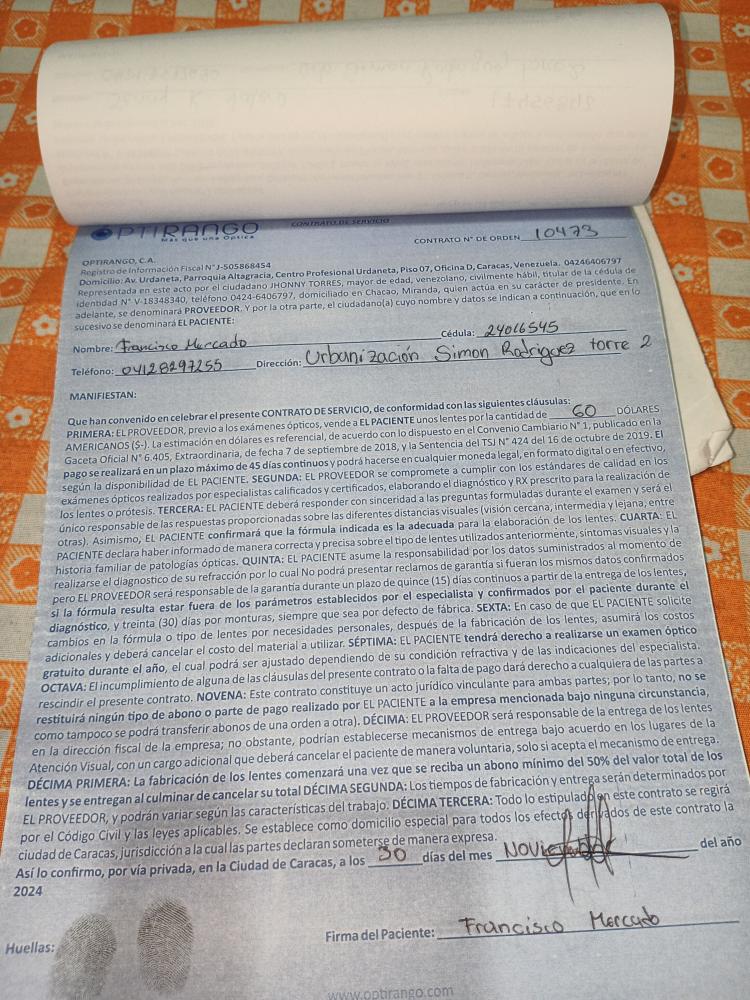 OPTIRANGO
Más que una Óptica
CONTRATO DE SERVICIO
CONTRATO N° DE ORDEN 10473
OPTIRANGO, C.A.
Registro de Información Fiscal N° J-505868454
Domicilio: Av. Urdaneta, Parroquia Altagracia, Centro Profesional Urdaneta, Piso 07, Oficina D, Caracas, Venezuela. 04246406797
Representada en este acto por el ciudadano JHONNY TORRES, mayor de edad, venezolano, civilmente hábil, titular de la cédula de
identidad N° V-18348340, teléfono 0424-6406797, domiciliado en Chacao, Miranda, quien actúa en su carácter de presidente. En
adelante, se denominará PROVEEDOR. Y por la otra parte, el ciudadano(a) cuyo nombre y datos se indican a continuación, que en lo
sucesivo se denominará EL PACIENTE:
Nombre: Francisco Mercado Cédula: 24016545
Teléfono: 04128297255 Dirección: Urbanización Simon Rodriguez torre 2
MANIFIESTAN:
Que han convenido en celebrar el presente CONTRATO DE SERVICIO, de conformidad con las siguientes cláusulas:
PRIMERA: EL PROVEEDOR, previo a los exámenes ópticos, vende a EL PACIENTE unos lentes por la cantidad de 60 DÓLARES
AMERICANOS ($-). La estimación en dólares es referencial, de acuerdo con lo dispuesto en el Convenio Cambiario N° 1, publicado en la
Gaceta Oficial N° 6.405, Extraordinaria, de fecha 7 de septiembre de 2018, y la Sentencia del TSJ N° 424 del 16 de octubre de 2019. El
pago se realizará en un plazo máximo de 45 días continuos y podrá hacerse en cualquier moneda legal, en formato digital o en efectivo,
según la disponibilidad de EL PACIENTE. SEGUNDA: EL PROVEEDOR se compromete a cumplir con los estándares de calidad en los
exámenes ópticos realizados por especialistas calificados y certificados, elaborando el diagnóstico y RX prescrito para la realización de
los lentes o prótesis. TERCERA: EL PACIENTE deberá responder con sinceridad a las preguntas formuladas durante el examen y será el
único responsable de las respuestas proporcionadas sobre las diferentes distancias visuales (visión cercana, intermedia y lejana, entre
otras). Asimismo, EL PACIENTE confirmará que la fórmula indicada es la adecuada para la elaboración de los lentes. CUARTA: EL
PACIENTE declara haber informado de manera correcta y precisa sobre el tipo de lentes utilizados anteriormente, síntomas visuales y la
historia familiar de patologías ópticas. QUINTA: EL PACIENTE asume la responsabilidad por los datos suministrados al momento de
realizarse el diagnostico de su refracción por lo cual No podrá presentar reclamos de garantía si fueran los mismos datos confirmados
pero EL PROVEEDOR será responsable de la garantía durante un plazo de quince (15) días continuos a partir de la entrega de los lentes,
si la fórmula resulta estar fuera de los parámetros establecidos por el especialista y confirmados por el paciente durante el
diagnóstico, y treinta (30) días por monturas, siempre que sea por defecto de fábrica. SEXTA: En caso de que EL PACIENTE solicite
cambios en la fórmula o tipo de lentes por necesidades personales, después de la fabricación de los lentes, asumirá los costos
adicionales y deberá cancelar el costo del material a utilizar. SÉPTIMA: EL PACIENTE tendrá derecho a realizarse un examen óptico
gratuito durante el año, el cual podrá ser ajustado dependiendo de su condición refractiva y de las indicaciones del especialista.
OCTAVA: El incumplimiento de alguna de las cláusulas del presente contrato o la falta de pago dará derecho a cualquiera de las partes a
rescindir el presente contrato. NOVENA: Este contrato constituye un acto jurídico vinculante para ambas partes; por lo tanto, no se
restituirá ningún tipo de abono o parte de pago realizado por EL PACIENTE a la empresa mencionada bajo ninguna circunstancia,
como tampoco se podrá transferir abonos de una orden a otra). DÉCIMA: EL PROVEEDOR será responsable de la entrega de los lentes
en la dirección fiscal de la empresa; no obstante, podrían establecerse mecanismos de entrega bajo acuerdo en los lugares de la
Atención Visual, con un cargo adicional que deberá cancelar el paciente de manera voluntaria, solo si acepta el mecanismo de entrega.
DÉCIMA PRIMERA: La fabricación de los lentes comenzará una vez que se reciba un abono mínimo del 50% del valor total de los
lentes y se entregan al culminar de cancelar su total DÉCIMA SEGUNDA: Los tiempos de fabricación y entrega serán determinados por
EL PROVEEDOR, y podrán variar según las características del trabajo. DÉCIMA TERCERA: Todo lo estipulado en este contrato se regirá
por el Código Civil y las leyes aplicables. Se establece como domicilio especial para todos los efectos derivados de este contrato la
ciudad de Caracas, jurisdicción a la cual las partes declaran someterse de manera expresa.
Así lo confirmo, por vía privada, en la Ciudad de Caracas, a los 30 días del mes del año
2024
Huellas:
Firma del Paciente: Francisco Mercado
www.optirango.com